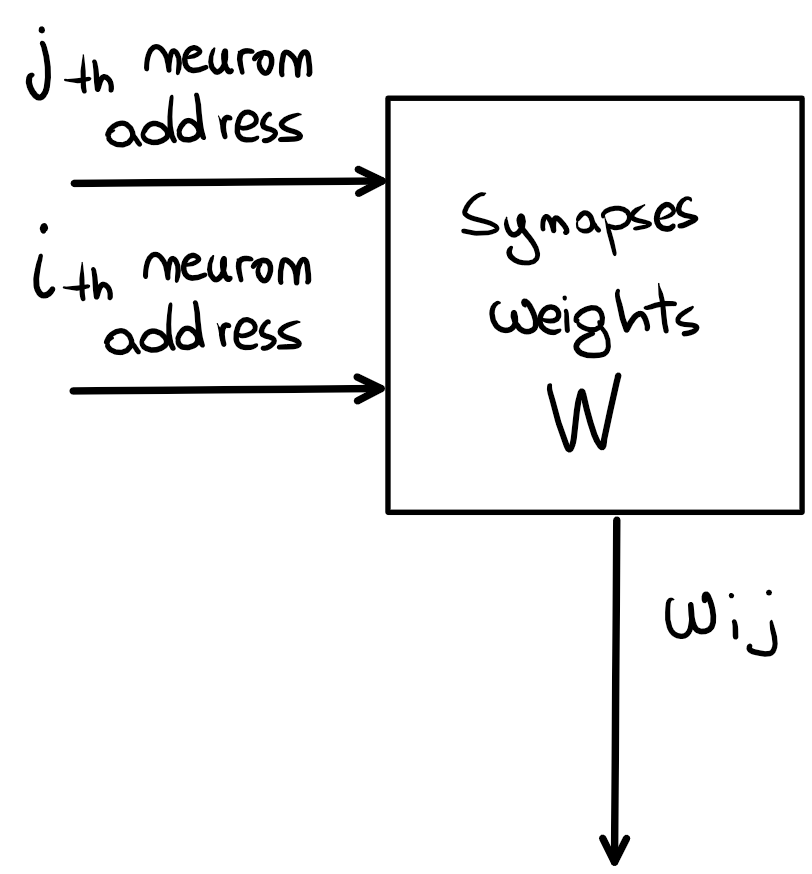 jth neuron
address
ith neuron
address
Synapses
weights
W
wij